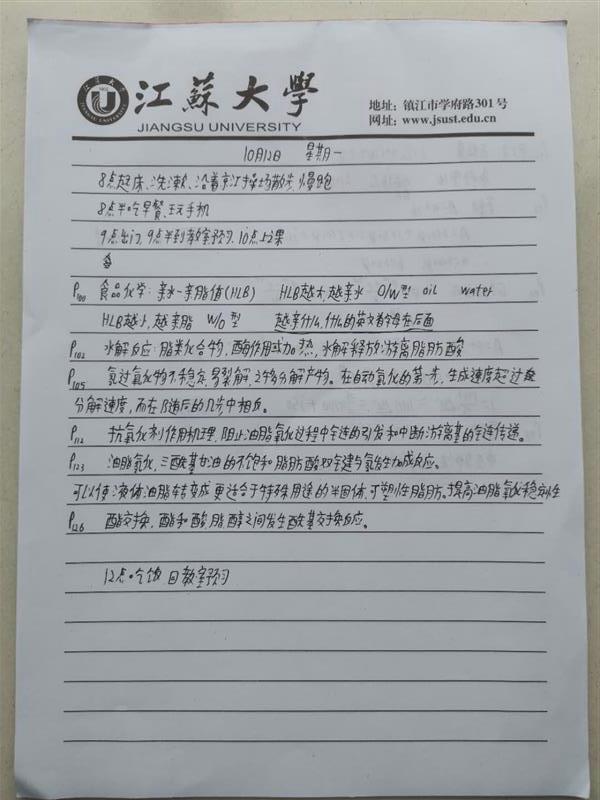 江蘇大學
JIANGSU UNIVERSITY
地址：镇江市学府路301号
网址：www.jsust.edu.cn
10月12日 星期一
8点起床、洗漱、沿着京江操场散步、慢跑
8点半吃早餐、玩手机
9点出门，9点半到教室预习，10点上课
P100 食品化学：亲水-亲脂值(HLB) HLB越大，越亲水 O/W型 oil water
HLB越小，越亲脂 W/O型 越亲什么，什么的英文首字母在后面
P102 水解反应：脂类化合物，酶作用或加热，水解释放游离脂肪酸
P105 氢过氧化物不稳定，易裂解，2级分解产物。在自动氧化的第一步，生成速度超过
分解速度，而在随后的几步中相反。
P112 抗氧化剂作用机理，阻止油脂氧化过程中链的引发和中断游离基的链传递。
P123 油脂氢化，三酰基甘油的不饱和脂肪酸双键与氢发生加成反应。
可以使液体油脂转变成更适合于特殊用途的半固体、可塑性脂肪。提高油脂氧化稳定性
P126 酯交换，酯和酸、脂、醇之间发生酰基交换反应。
12点吃饭 回教室预习